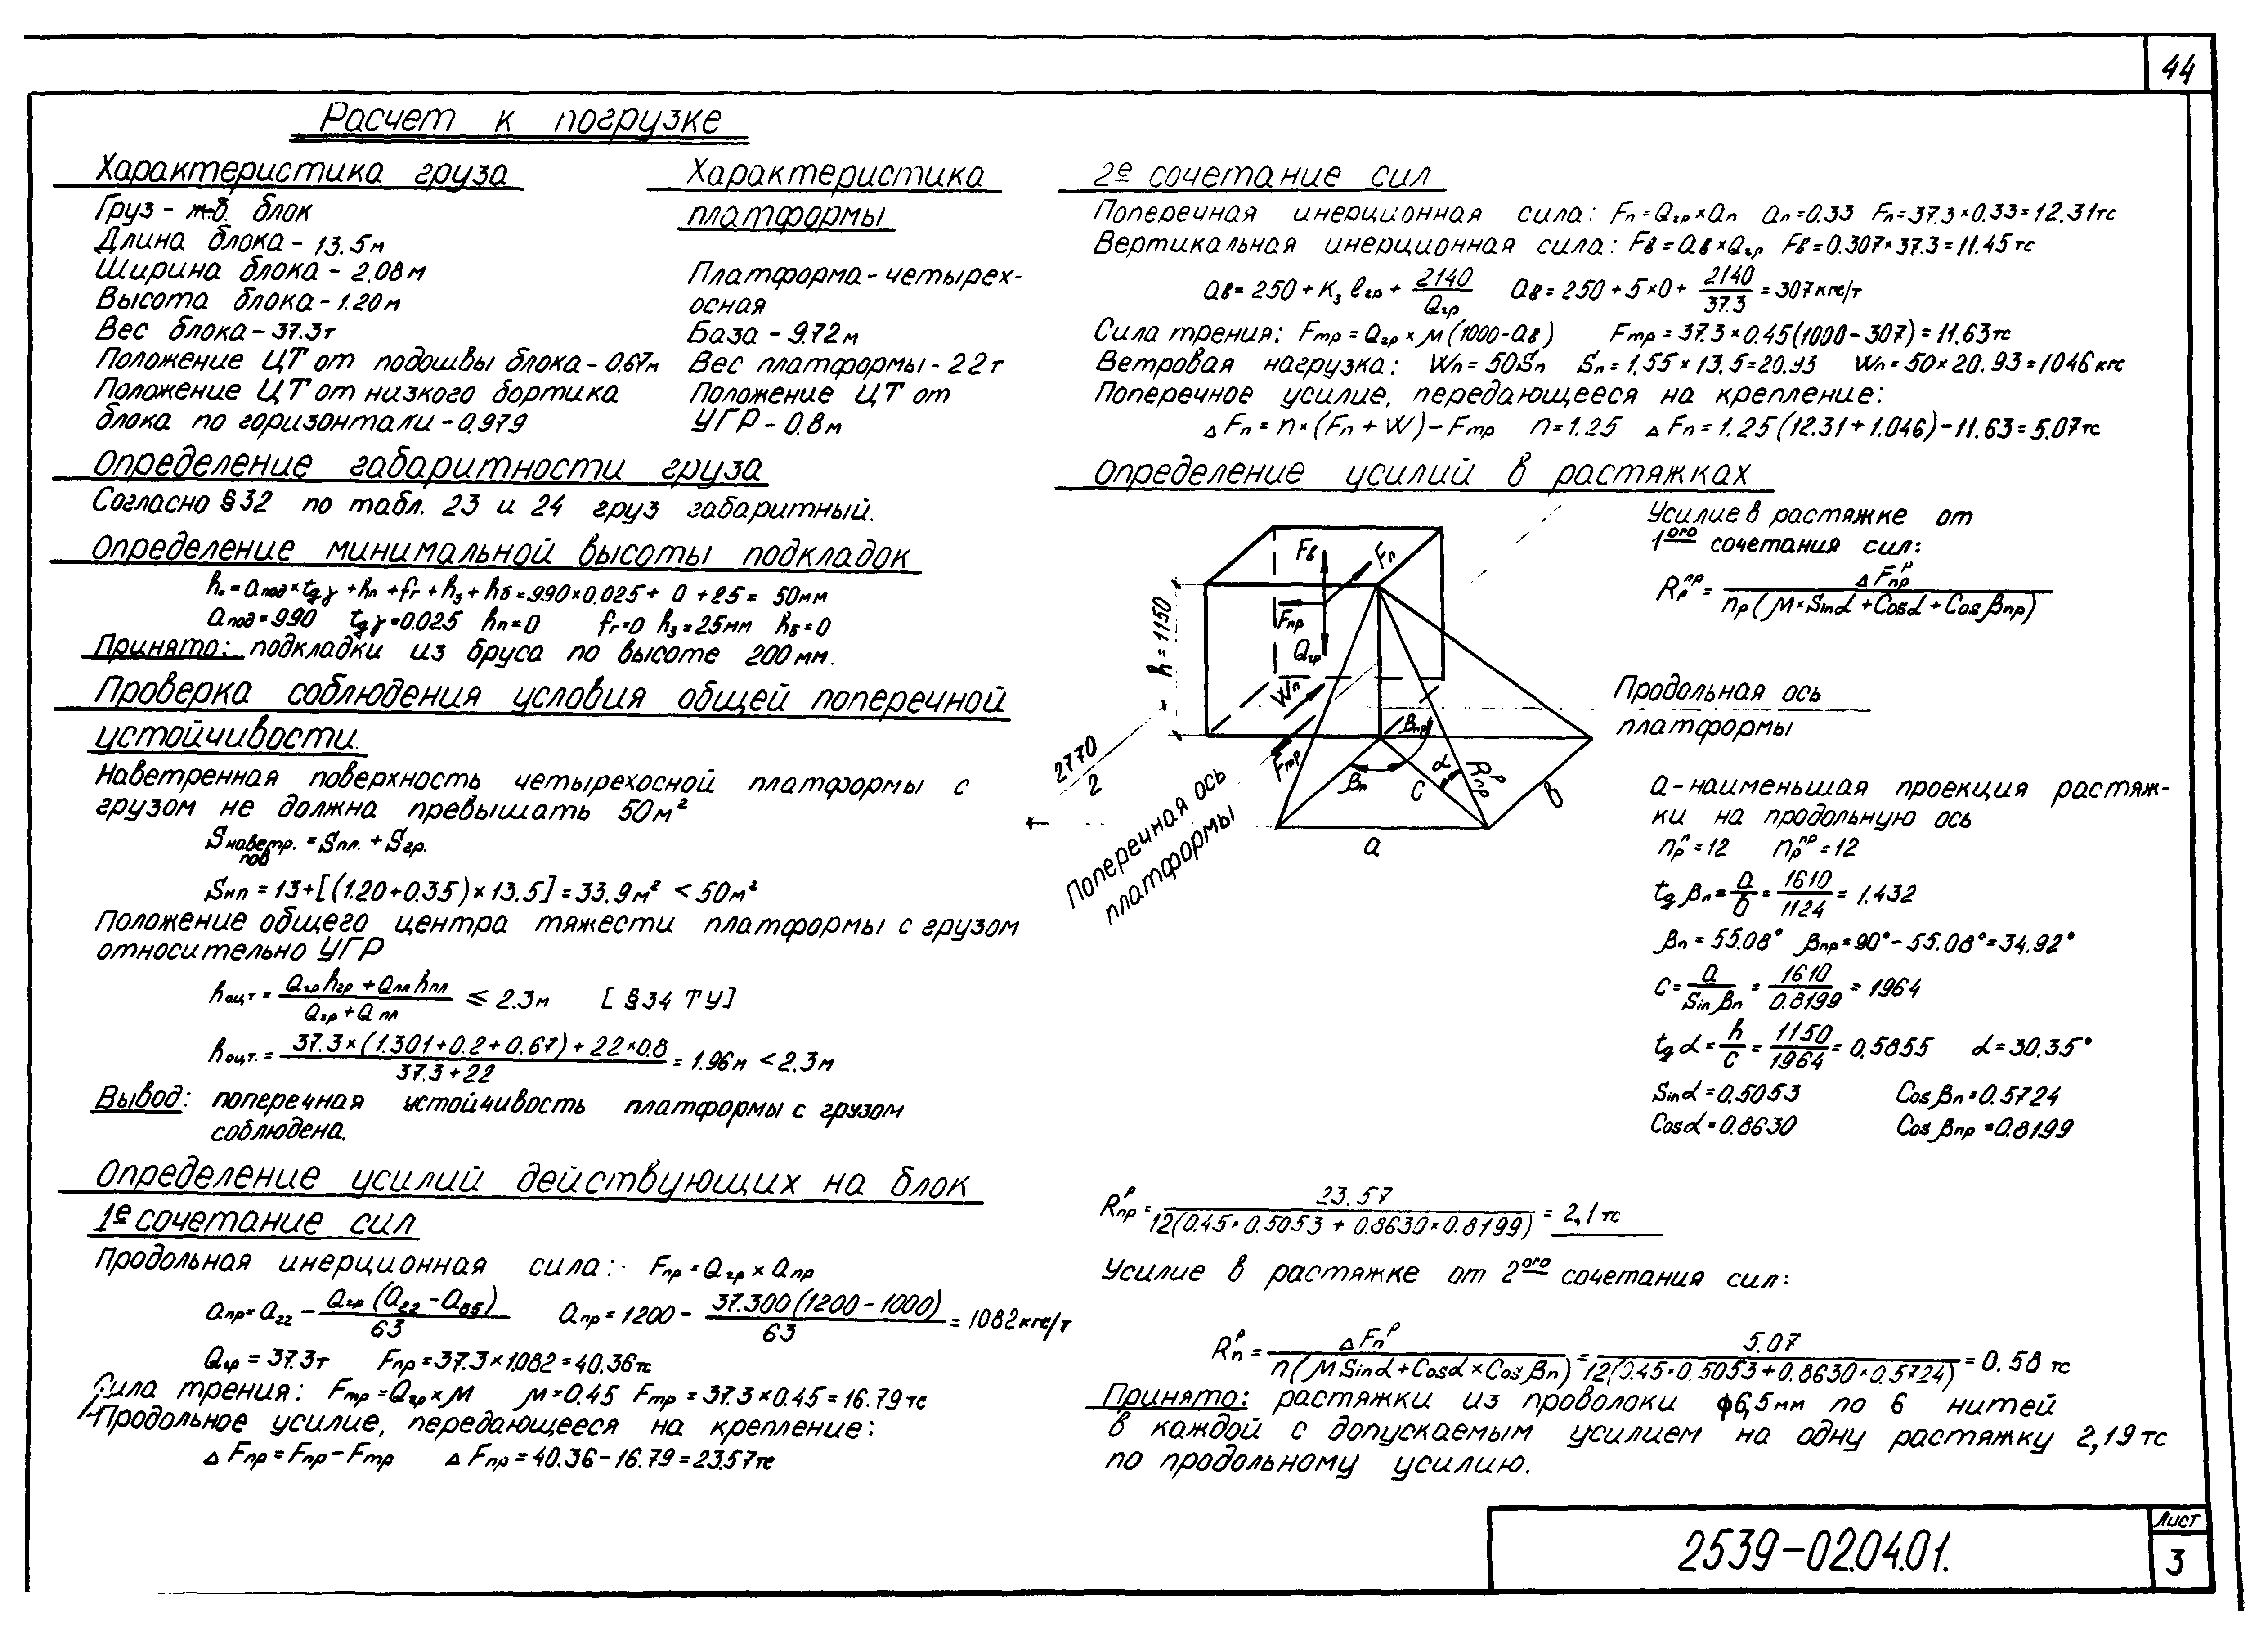 44
Расчет к погрузке
Характеристика груза
Груз - ж-б. блок
Длина блока - 13.5м
Ширина блока - 2.08м
Высота блока - 1.20м
Вес блока - 37.3т
Положение ЦТ от подошвы блока - 0.67м
Положение ЦТ от низкого бортика
блока по горизонтали - 0.979
Характеристика
платформы
Платформа - четырех-
осная
База - 9.72м
Вес платформы - 22т
Положение ЦТ от
УГР - 0.8м
Определение габаритности груза
Согласно §32 по табл. 23 и 24 груз габаритный.
Определение минимальной высоты подкладок
h₀ = aпод × tgγ + hп + fг + hз + hб = 990 × 0.025 + 0 + 25 = 50мм
aпод = 990 tgγ = 0.025 hп = 0 fг = 0 hз = 25мм hб = 0
Принято: подкладки из бруса по высоте 200мм.
Проверка соблюдения условия общей поперечной
устойчивости.
Наветренная поверхность четырехосной платформы с
грузом не должна превышать 50м²
Sнаветр. пов = Sпл. + Sгр.
Sнп = 13 + [(1.20 + 0.35) × 13.5] = 33.9м² < 50м²
Положение общего центра тяжести платформы с грузом
относительно УГР
hоцт = (Qгр hгр + Qпл hпл) / (Qгр + Qпл) ⩽ 2.3м [§34 ТУ]
hоцт. = (37.3 × (1.301 + 0.2 + 0.67) + 22 × 0.8) / (37.3 + 22) = 1.96м < 2.3м
Вывод: поперечная устойчивость платформы с грузом
соблюдена.
Определение усилий действующих на блок
1е сочетание сил
Продольная инерционная сила: Fпр = Qгр × aпр
aпр = a₂₂ - Qгр (a₂₂ - a₈₅) / 63 aпр = 1200 - 37.300 (1200 - 1000) / 63 = 1082кгс/т
Qгр = 37.3т Fпр = 37.3 × 1.082 = 40.36тс
Сила трения: Fтр = Qгр × М М = 0.45 Fтр = 37.3 × 0.45 = 16.79тс
Продольное усилие, передающееся на крепление:
ΔFпр = Fпр - Fтр ΔFпр = 40.36 - 16.79 = 23.57тс
2е сочетание сил
Поперечная инерционная сила: Fп = Qгр × aп aп = 0.33 Fп = 37.3 × 0.33 = 12.31тс
Вертикальная инерционная сила: Fв = aв × Qгр Fв = 0.307 × 37.3 = 11.45тс
aв = 250 + Kз lгр + 2140 / Qгр aв = 250 + 5 × 0 + 2140 / 37.3 = 307кгс/т
Сила трения: Fтр = Qгр × М (1000 - aв) Fтр = 37.3 × 0.45 (1000 - 307) = 11.63тс
Ветровая нагрузка: Wп = 50Sп Sп = 1.55 × 13.5 = 20.93 Wп = 50 × 20.93 = 1046кгс
Поперечное усилие, передающееся на крепление:
ΔFп = n × (Fп + W) - Fтр n = 1.25 ΔFп = 1.25 (12.31 + 1.046) - 11.63 = 5.07тс
Определение усилий в растяжках
Fв
Fп
Fпр
Qгр
Wп
Fтр
h = 1150
2770 / 2
βпр
βп
α
c
Rпрᵖ
в
a
Поперечная ось
платформы
Продольная ось
платформы
Усилие в растяжке от
1ого сочетания сил:
Rрпр = ΔFпрᵖ / nр (М × Sinα + Cosα + Cosβпр)
a - наименьшая проекция растяж-
ки на продольную ось
nрп = 12 nрпр = 12
tgβп = a / в = 1610 / 1124 = 1.432
βп = 55.08° βпр = 90° - 55.08° = 34.92°
c = a / Sinβп = 1610 / 0.8199 = 1964
tgα = h / c = 1150 / 1964 = 0.5855 α = 30.35°
Sinα = 0.5053 Cosβп = 0.5724
Cosα = 0.8630 Cosβпр = 0.8199
Rпрᵖ = 23.57 / 12(0.45 · 0.5053 + 0.8630 × 0.8199) = 2,1тс
Усилие в растяжке от 2ого сочетания сил:
Rпᵖ = ΔFпᵖ / n(М Sinα + Cosα × Cosβп) = 5.07 / 12(0.45 · 0.5053 + 0.8630 × 0.5724) = 0.58тс
Принято: растяжки из проволоки ф6,5мм по 6 нитей
в каждой с допускаемым усилием на одну растяжку 2,19тс
по продольному усилию.
2539-02.04.01.
Лист
3